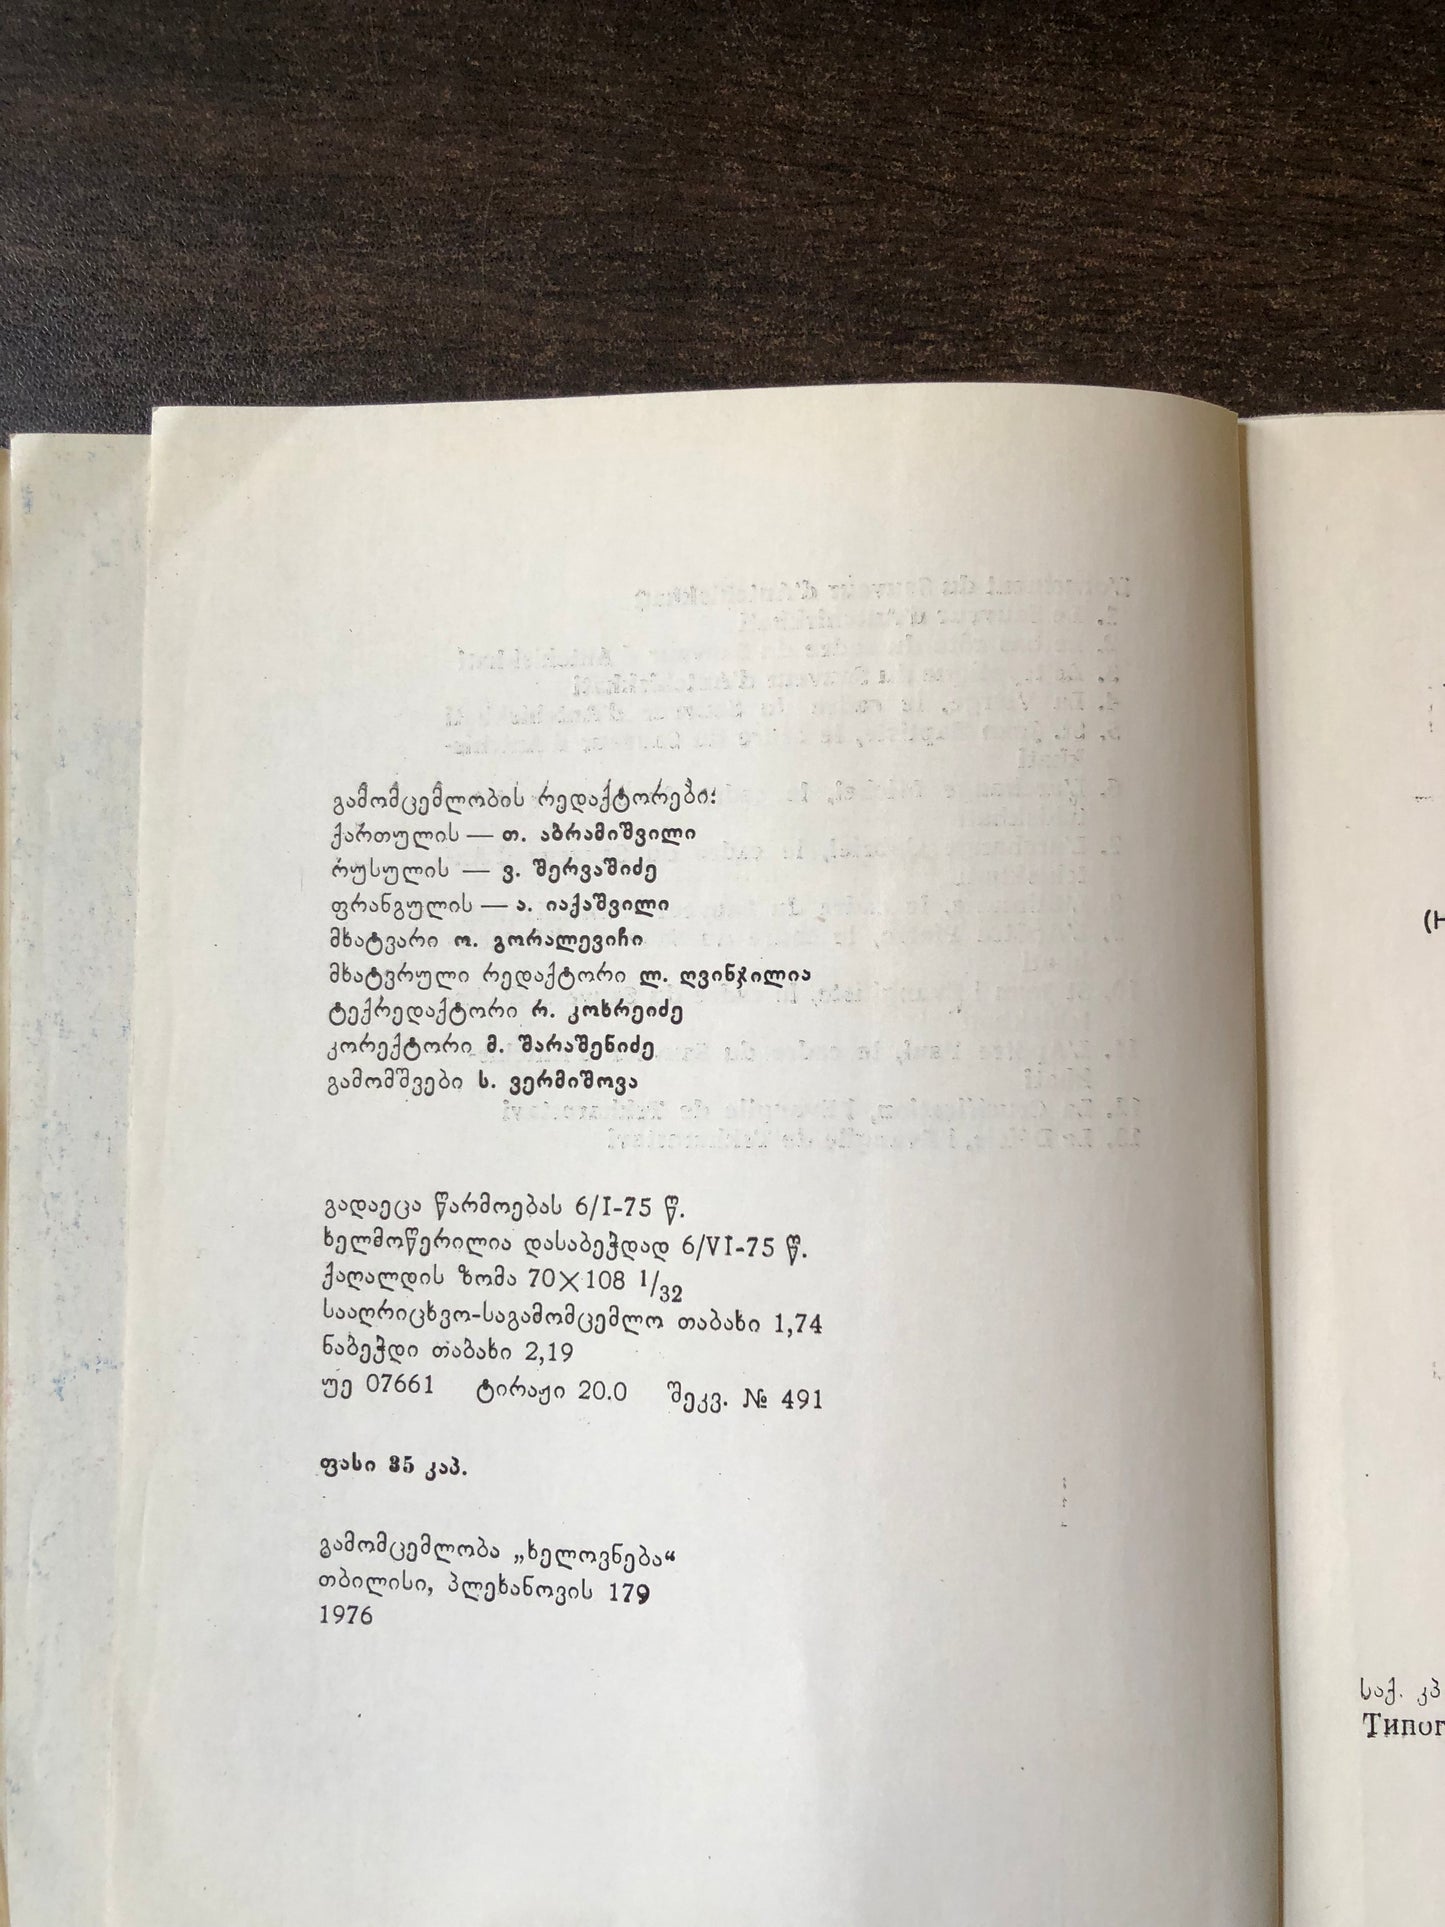 გამომცემლობის რედაქტორები:
ქართულის — თ. აბრამიშვილი
რუსულის — ვ. შერვაშიძე
ფრანგულის — ა. იაქაშვილი
მხატვარი ო. გორალევიჩი
მხატვრული რედაქტორი ლ. ღვინჯილია
ტექრედაქტორი რ. კოხრეიძე
კორექტორი მ. შარაშენიძე
გამომშვები ს. ვერმიშოვა
გადაეცა წარმოებას 6/I-75 წ.
ხელმოწერილია დასაბეჭდად 6/VI-75 წ.
ქაღალდის ზომა 70×108 1/32
სააღრიცხვო-საგამომცემლო თაბახი 1,74
ნაბეჭდი თაბახი 2,19
უე 07661 ტირაჟი 20.0 შეკვ. № 491
ფასი 35 კაპ.
გამომცემლობა „ხელოვნება“
თბილისი, პლეხანოვის 179
1976
(Н
საქ. კპ
Типог